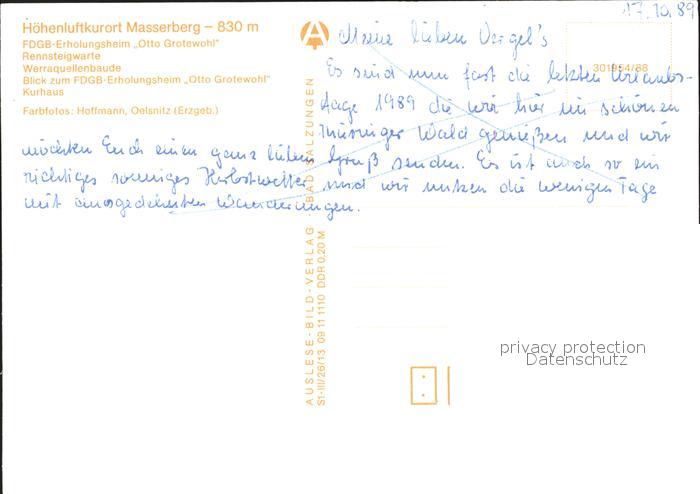 17.10.89
Höhenluftkurort Masserberg – 830 m
FDGB-Erholungsheim „Otto Grotewohl"
Rennsteigwarte
Werraquellenbaude
Blick zum FDGB-Erholungsheim „Otto Grotewohl"
Kurhaus
Farbfotos: Hoffmann, Oelsnitz (Erzgeb.)
301954/88
Meine lieben Vogel's
Es sind nun fast die letzten Urlaubs-
tage 1989 die wir hier im schönen
Thüringer Wald genießen und wir
möchten Euch einen ganz lieben Gruß senden. Es ist auch so ein
richtiges sonniges Herbstwetter und wir nutzen die wenigen Tage
mit ausgedehnten Wanderungen.
AUSLESE-BILD-VERLAG BAD SALZUNGEN
S1-III/26/13 09 11 1110 DDR 0,20 M
privacy protection
Datenschutz